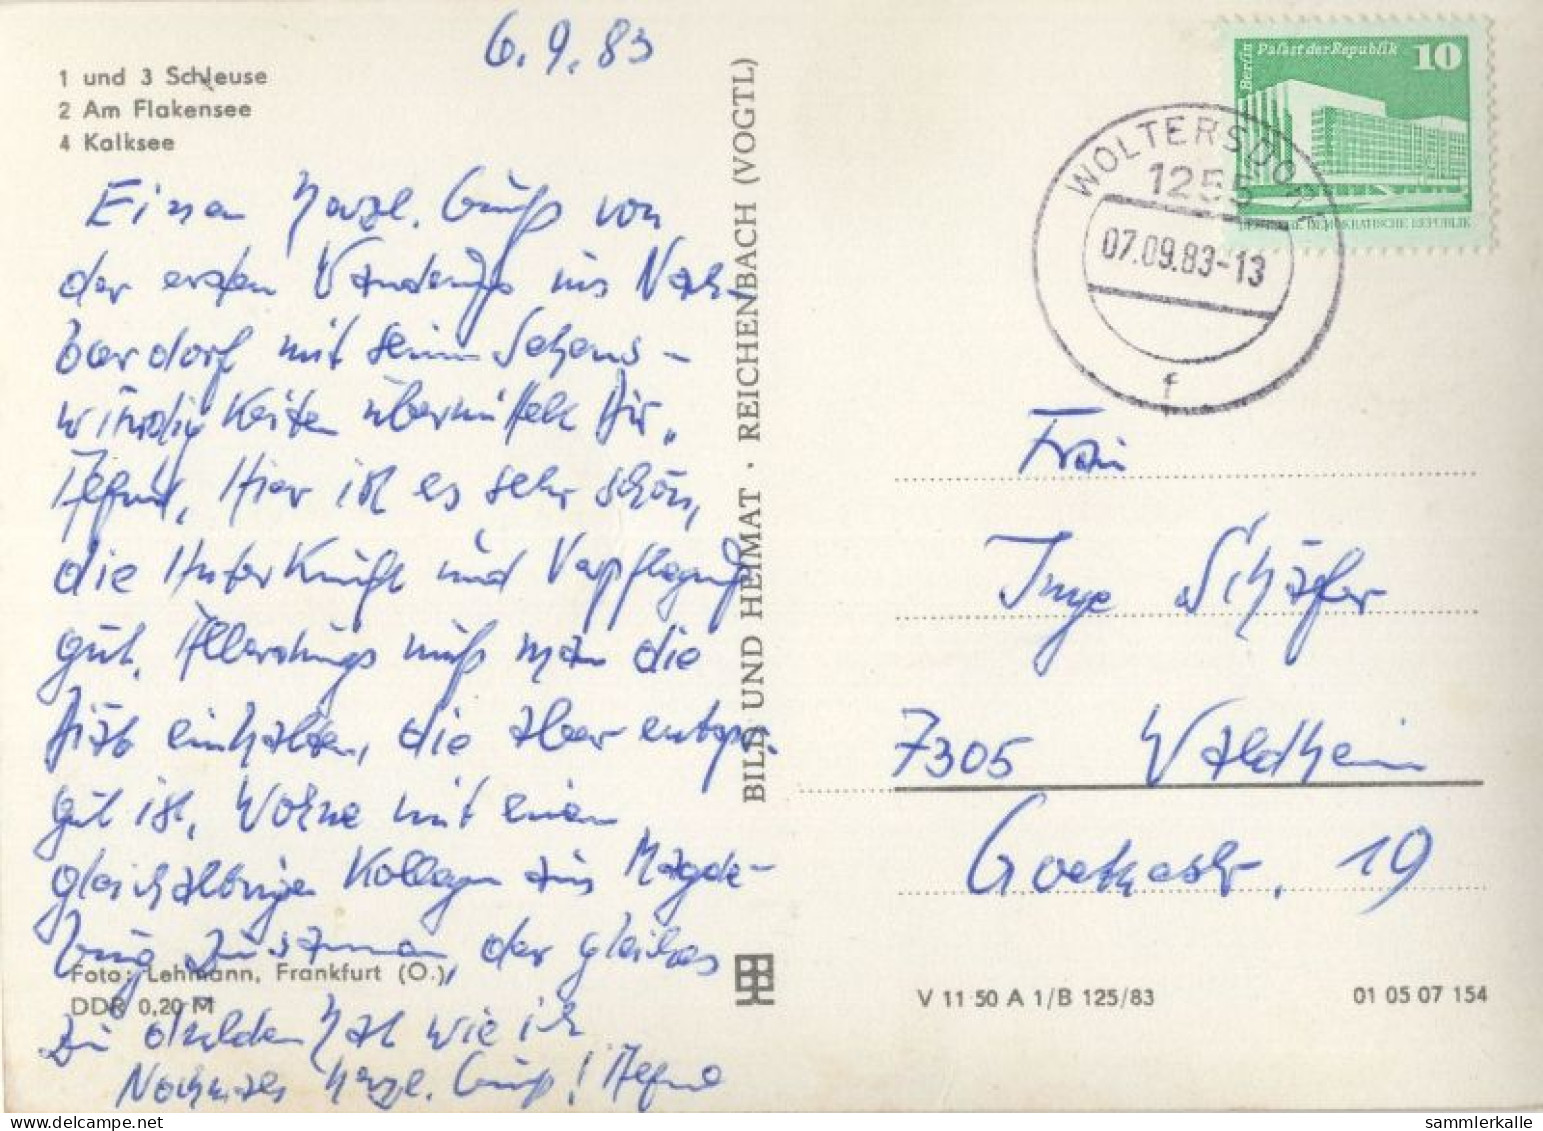 6.9.83
1 und 3 Schleuse
2 Am Flakensee
4 Kalksee
Einen herzl. Gruß von
der ersten Wanderung ins Nach-
bardorf mit seinen Sehens-
würdigkeiten übermittelt Dir
Hier ist es sehr schön,
die Unterkunft und Verpflegung
gut. Allerdings muß man die
Diät einhalten, die aber entspr.
gut ist. Wohne mit einem
gleichaltrigen Kollegen aus Magde-
burg zusammen, der gleiches
zu dulden hat wie ich
Nochmals herzl. Gruß!
Foto: Lehmann, Frankfurt (O.)
DDR 0,20 M
BILD UND HEIMAT · REICHENBACH (VOGTL)
Berlin Palast der Republik 10
DEUTSCHE DEMOKRATISCHE REPUBLIK
WOLTERSDORF
1255
07.09.83-13
f
Frau
Inge Schäfer
7305 Waldheim
Goethestr. 19
V 11 50 A 1/B 125/83
01 05 07 154
sammlerkalle